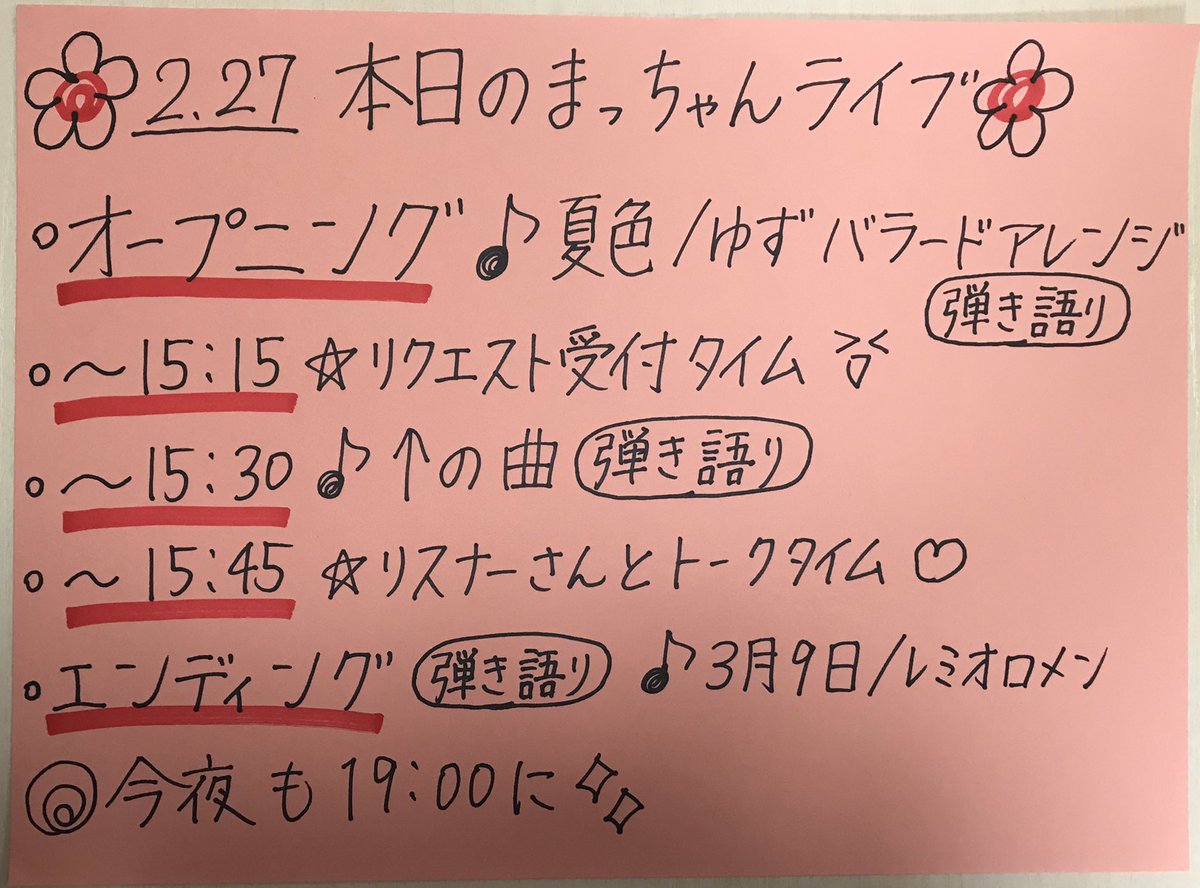 2.27 本日のまっちゃんライブ
・オープニング ♪ 夏色/ゆず バラードアレンジ
弾き語り
・〜15:15 ☆リクエスト受付タイム
・〜15:30 ♪ ↑の曲 弾き語り
・〜15:45 ☆リスナーさんとトークタイム ♡
・エンディング 弾き語り ♪3月9日/レミオロメン
◎今夜も19:00に